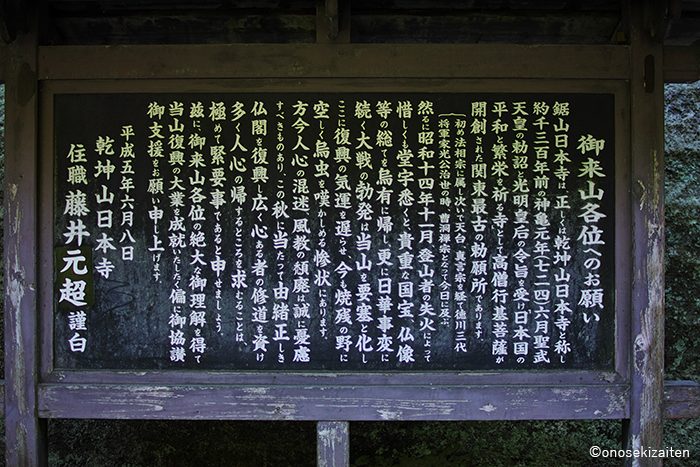 御来山各位へのお願い
鋸山日本寺は、正しくは乾坤山日本寺と称し
約千三百年前の神亀元年(七二四)六月聖武
天皇の勅詔と光明皇后の令旨を受け日本国の
平和と繁栄を祈る寺として高僧行基菩薩が
開創された関東最古の勅願所であります。
(初め法相宗に属し次いで天台、真言宗を経て徳川三代
将軍家光公治世の時、曹洞禅宗となって今日に及ぶ。)
然るに昭和十四年十一月、登山者の失火によって
惜しくも堂宇悉く、貴重な国宝、仏像
等の総てを烏有に帰し更に日華事変に
続く大戦の勃発は当山を要塞と化し
ここに復興の気運を遅らせ、今も焼残の野に
空しく烏虫を嘆かしめる惨状にあります。
方今人心の混迷、風教の頽廃は誠に憂慮
すべきものあり、この秋に当たって由緒正しき
仏閣を復興し広く心ある者の修道を資け
多く人心の帰するところを求むることは、
極めて緊要事であると申せましょう。
茲に、御来山各位の絶大な御理解を得て
当山復興の大業を成就いたしたく偏に御協讃
御支援をお願い申し上げます。
平成五年六月八日
乾坤山日本寺
住職 藤井元超 謹白
©onosekizaiten